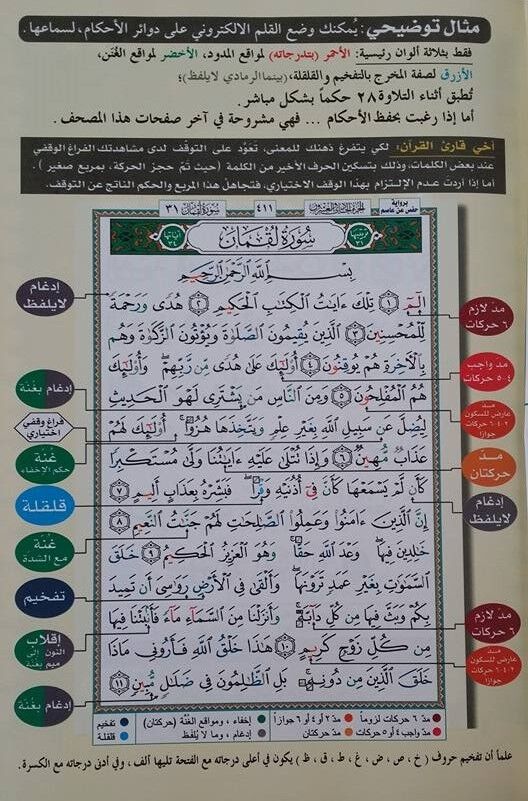 مثال توضيحي: يُمكنك وضع القلم الالكتروني على دوائر الأحكام، لسماعها.
فقط بثلاثة ألوان رئيسية: الأحمر (بتدرجاته) لمواقع المدود، الأخضر لمواقع الغُنَن،
الأزرق لصفة المخرج بالتفخيم والقلقلة، (بينما الرمادي لايلفظ)؛
تُطبق أثناء التلاوة ٢٨ حكماً بشكل مباشر.
أما إذا رغبت بحفظ الأحكام ... فهي مشروحة في آخر صفحات هذا المصحف.
أخي قارئ القرآن: لكي يتفرغ ذهنك للمعنى، تَعَوَّد على التوقف لدى مشاهدتك الفراغ الوقفي
عند بعض الكلمات، وذلك بتسكين الحرف الأخير من الكلمة (حيث تَمَّ حجز الحركة، بمربع صغير)
أما إذا أردت عدم الإلتزام بهذا الوقف الاختياري، فتجاهل هذا المربع والحكم الناتج عن التوقف.
برواية
حفص عن عاصم
٤١١
سُورَةُ لُقْمَانَ ٣١
سُورَةُ لُقْمَانَ
بِسْمِ اللَّهِ الرَّحْمَٰنِ الرَّحِيمِ
الٓمٓ ١ تِلْكَ ءَايَٰتُ الْكِتَٰبِ الْحَكِيمِ ٢ هُدًى وَرَحْمَةً
لِّلْمُحْسِنِينَ ٣ الَّذِينَ يُقِيمُونَ الصَّلَوٰةَ وَيُؤْتُونَ الزَّكَوٰةَ وَهُم
بِالْءَاخِرَةِ هُمْ يُوقِنُونَ ٤ أُو۟لَٰٓئِكَ عَلَىٰ هُدًى مِّن رَّبِّهِمْ وَأُو۟لَٰٓئِكَ
هُمُ الْمُفْلِحُونَ ٥ وَمِنَ النَّاسِ مَن يَشْتَرِى لَهْوَ الْحَدِيثِ
لِيُضِلَّ عَن سَبِيلِ اللَّهِ بِغَيْرِ عِلْمٍ وَيَتَّخِذَهَا هُزُوًا أُو۟لَٰٓئِكَ لَهُمْ
عَذَابٌ مُّهِينٌ ٦ وَإِذَا تُتْلَىٰ عَلَيْهِ ءَايَٰتُنَا وَلَّىٰ مُسْتَكْبِرًا
كَأَن لَّمْ يَسْمَعْهَا كَأَنَّ فِىٓ أُذُنَيْهِ وَقْرًا فَبَشِّرْهُ بِعَذَابٍ أَلِيمٍ ٧
إِنَّ الَّذِينَ ءَامَنُوا۟ وَعَمِلُوا۟ الصَّٰلِحَٰتِ لَهُمْ جَنَّٰتُ النَّعِيمِ ٨
خَٰلِدِينَ فِيهَا وَعْدَ اللَّهِ حَقًّا وَهُوَ الْعَزِيزُ الْحَكِيمُ ٩ خَلَقَ
السَّمَٰوَٰتِ بِغَيْرِ عَمَدٍ تَرَوْنَهَا وَأَلْقَىٰ فِى الْأَرْضِ رَوَٰسِىَ أَن تَمِيدَ
بِكُمْ وَبَثَّ فِيهَا مِن كُلِّ دَآبَّةٍ وَأَنزَلْنَا مِنَ السَّمَآءِ مَآءً فَأَنۢبَتْنَا فِيهَا
مِن كُلِّ زَوْجٍ كَرِيمٍ ١٠ هَٰذَا خَلْقُ اللَّهِ فَأَرُونِى مَاذَا
خَلَقَ الَّذِينَ مِن دُونِهِ بَلِ الظَّٰلِمُونَ فِى ضَلَٰلٍ مُّبِينٍ ١١
مدّ لازم
٦ حركات
مد واجب
٤-٥ حركات
مــد
عارض للسكون
٢-٤-٦ حركات
جوازاً
مَدّ
حركتان
إدغام
لايلفظ
مدّ لازم
٦ حركات
مــد
عارض للسكون
٢-٤-٦ حركات
جوازاً
إدغام
لايلفظ
إدغام بغُنة
فراغ وقفي
اختياري
غُنّة
حكم الاخفاء
قلقلة
غُنّة
مع الشدّة
تفخيم
إقلاب
النون إلى
ميم بغنة
إدغام بغُنة
مدّ ٦ حركات لزوماً
مدّ ٢ أو ٤ أو ٦ جوازاً
إخفاء، ومواقع الغُنَّة (حركتان)
تفخيم
مدّ واجب ٤ أو ٥ حركات
مدّ حركتان
إدغام، وما لا يُلفَظ
قلقلة
علماً أن تفخيم حروف (خ، ص، ض، غ، ط، ق، ظ) يكون في أعلى درجاته مع الفتحة تليها ألف، وفي أدنى درجاته مع الكسرة.